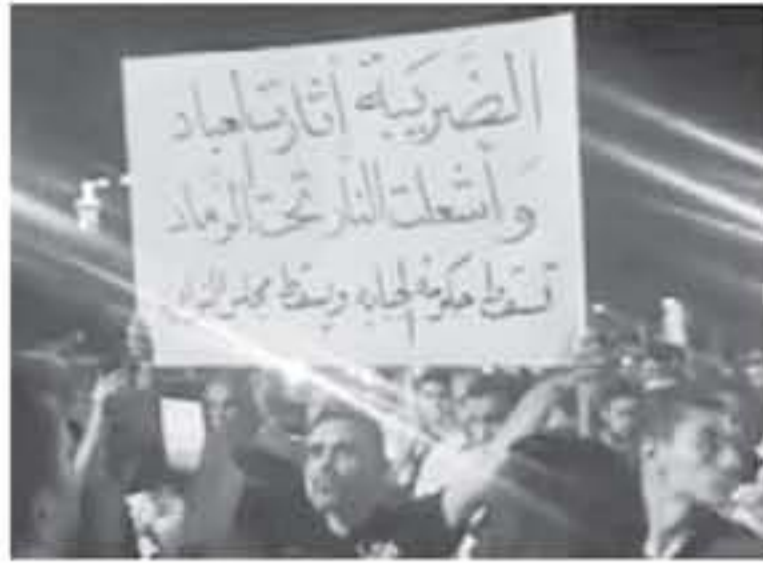 الضَّريبَة أثارت العباد
وَأشعلت النار تحت الرماد
تسقط حكومة الجبايه ويسقط مجلس النواب